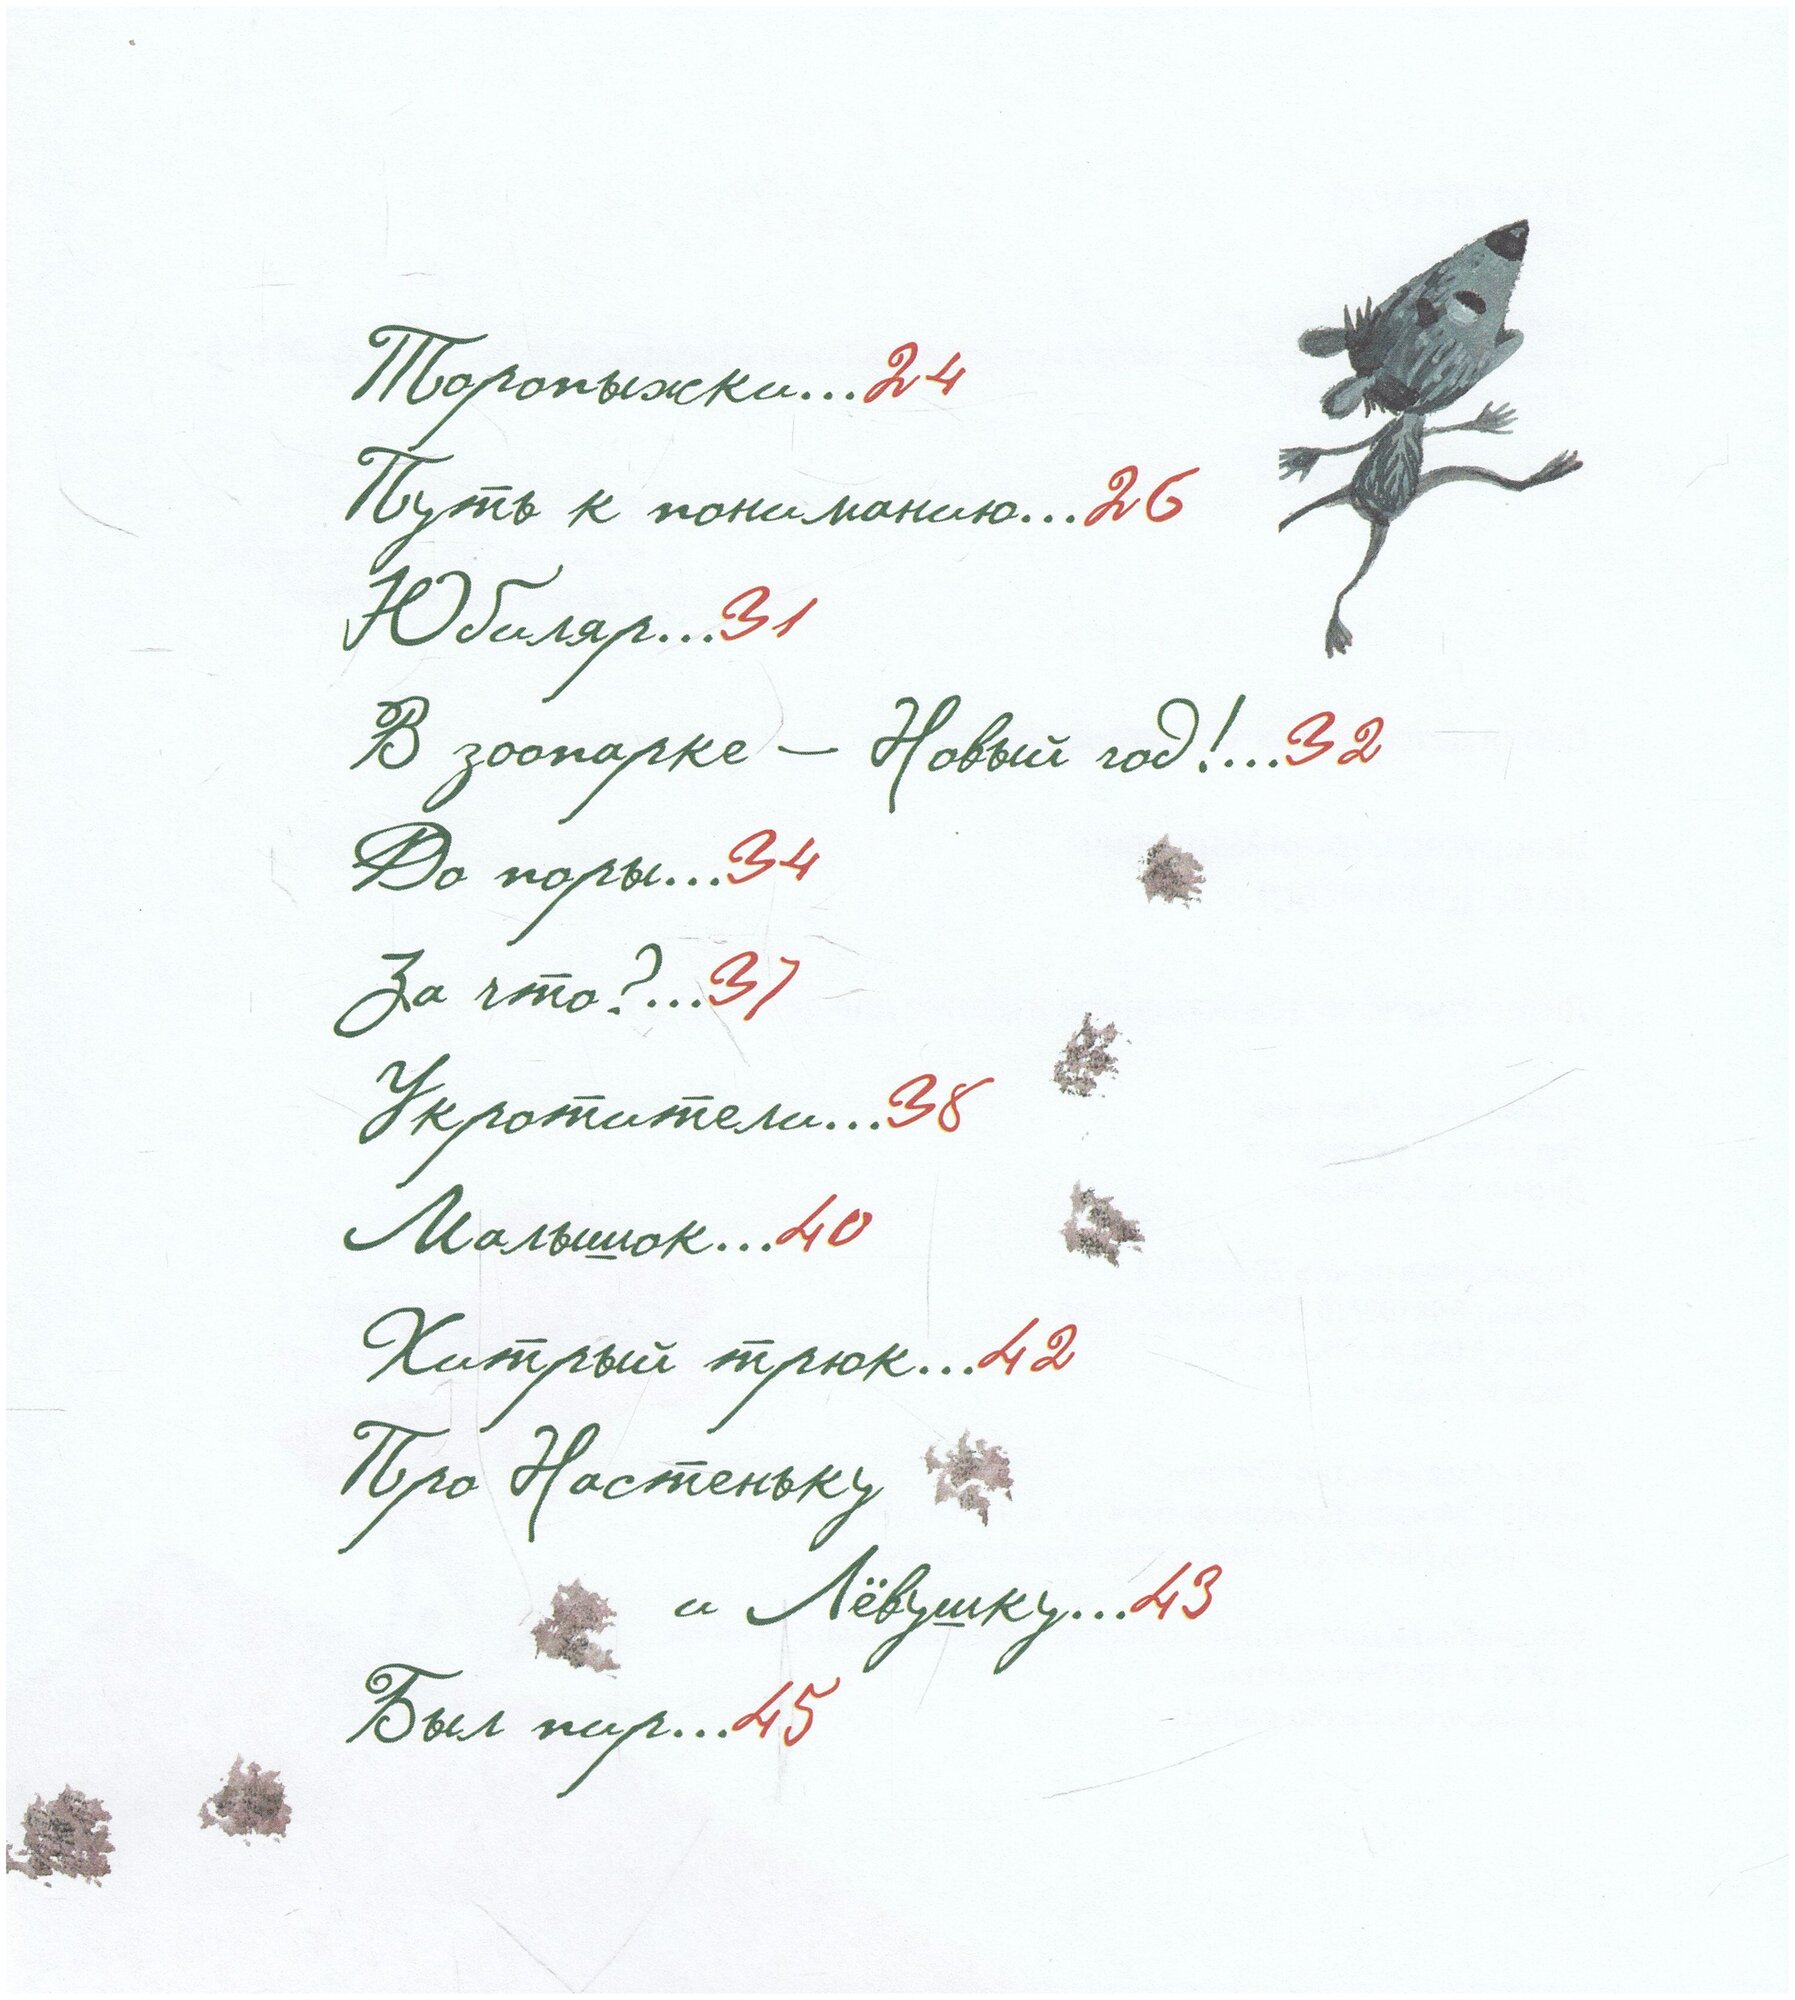 Торопыжки...24
Путь к пониманию...26
Юбиляр...31
В зоопарке — Новый год!...32
До поры...34
За что?...37
Укротители...38
Малышок...40
Хитрый трюк...42
Про Настеньку
и Лёвушку...43
Был пир...45